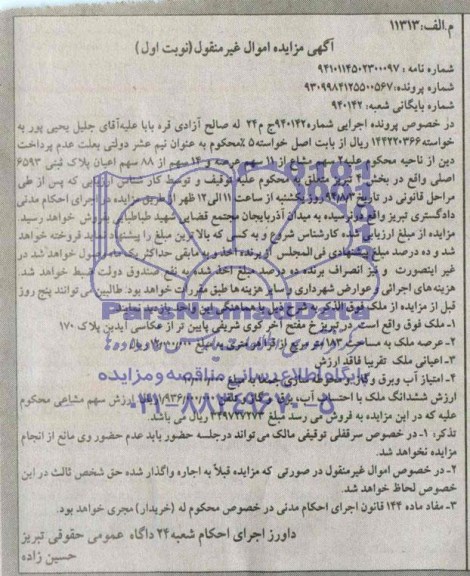 م.الف:۱۱۳۱۳
آگهی مزایده اموال غیرمنقول(نوبت اول)
شماره نامه: ۹۴۱۰۱۱۴۵۰۲۳۰۰۰۹۷
شماره پرونده:۹۳۰۹۹۸۴۱۲۵۵۰۰۵۶۷
شماره بایگانی شعبه: ۹۴۰۱۴۲
در خصوص پرونده اجرایی شماره۹۴۰۱۴۲ج م۲۴ له صالح آزادی قره بابا علیه آقای جلیل یحیی پور به
خواسته۱۴۴۲۲۰۳۶۶ ریال از بابت اصل خواسته۵٪ محکوم به عنوان نیم عشر دولتی بعلت عدم پرداخت
دین از ناحیه محکوم علیه۲ سهم مشاع از ۱۱ سهم عرصه و ۱۴ سهم از ۸۸ سهم اعیان پلاک ثبتی ۶۵۹۳
اصلی واقع در بخش تبریز متعلق به محکوم علیه توقیف و توسط کارشناس ارزیابی که پس از طی
مراحل قانونی در تاریخ روز یکشنبه از ساعت ۱۱الی۱۲ ظهر از طریق مزایده در اجرای احکام مدنی
دادگستری تبریز واقع در نرسیده به میدان آذربایجان مجتمع قضایی شهید طباطبایی بفروش خواهد رسید.
مزایده از مبلغ ارزیابی شده کارشناس شروع و به کسی که بالاترین مبلغ را پیشنهاد نماید فروخته خواهد
شد و ده درصد مبلغ پیشنهادی فی المجلس از برنده اخذ و مابقی حداکثر یک ماه وصول خواهد شد در
غیر اینصورت و نیز انصراف برنده ده درصد مبلغ اخذ شده به نفع صندوق دولت ضبط خواهد شد.
هزینه های اجرائی و عوارض شهرداری و سایر هزینه ها طبق مقررات خواهد بود. طالبین می توانند پنج روز
قبل از مزایده از ملک فوق الذکر به شرح ذیل با هماهنگی این واحد بازدید نمایند.
۱-ملک فوق واقع است در تبریز خ مفتح آخر کوی شریفی پایین تر از عکاسی آیدین پلاک ۱۷۰
۲-عرصه ملک به مساحت ۱۸۳ متر مربع از قرار متری به مبلغ ریال
۳-اعیانی ملک تقریبا فاقد ارزش
۴-امتیاز آب وبرق وگاز و محوطه سازی جمعا به مبلغ
ارزش ششدانگ ملک با احتساب آب، برق وگاز و تلفن ارزش سهم مشاعی محکوم
علیه که در این مزایده به فروش می رسد مبلغ ۳۳۹۷۲۷۲۷۳ ریال می باشد.
تذکر: ۱-در خصوص سرقفلی توقیفی مالک می تواند در جلسه حضور یابد عدم حضور وی مانع از انجام
مزایده نخواهد شد.
۲-در خصوص اموال غیرمنقول در صورتی که مزایده قبلاً به اجاره واگذار شده حق شخص ثالث در این
خصوص لحاظ خواهد شد.
۳-مفاد ماده ۱۴۴ قانون اجرای احکام مدنی در خصوص محکوم له (خریدار) مجری خواهد بود.
داورز اجرای احکام شعبه۲۴ دادگاه عمومی حقوقی تبریز
حسین زاده
ParsNamadData
پایگاه اطلاع رسانی مناقصه و مزایده
۰۲۱-۸۸۳۴۹۶۷۰-۵